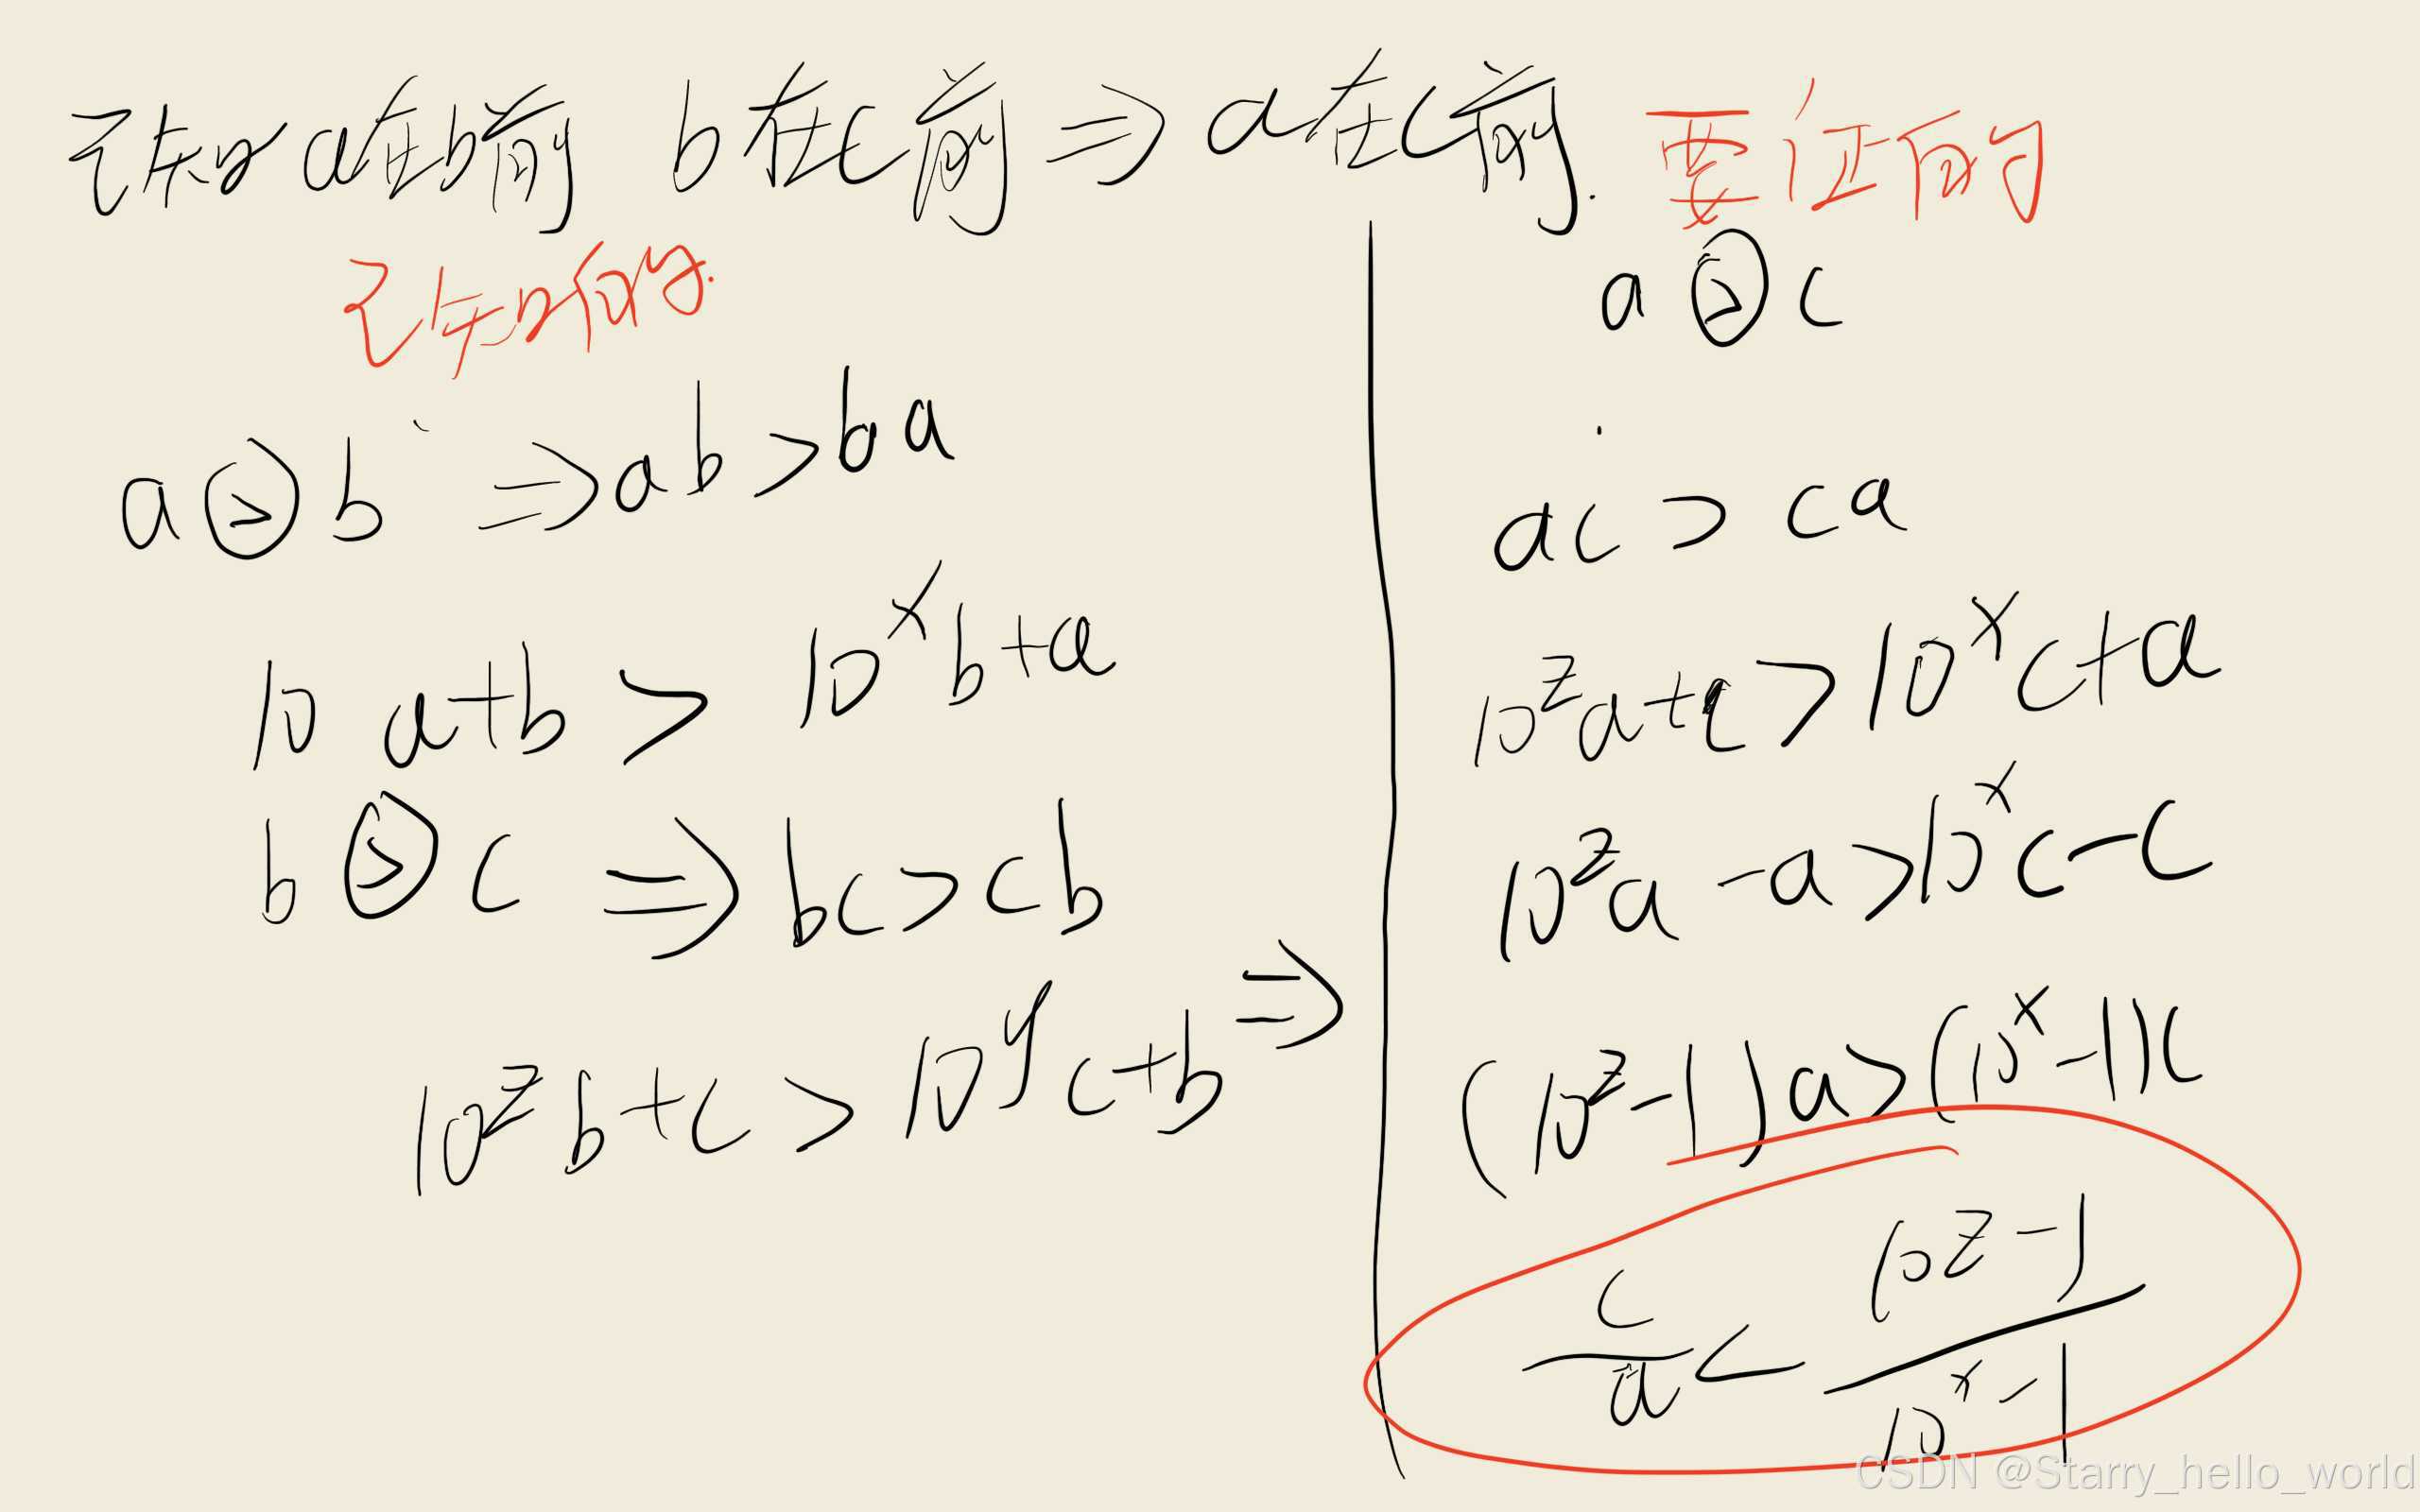 已知 a在b前 b在c前 ⇒ a在c前. 要证的
已知的.
a > b ⇒ ab > ba
10 a+b > 10^x b+a
b > c ⇒ bc > cb
10^z b+c > 10^y c+b ⇒
a > c
ac > ca
10^z a+c > 10^x c+a
10^z a-a > 10^x c-c
(10^z-1)a > (10^x-1)c
c/a < (10^z-1)/(10^x-1)
CSDN @Starry_hello_world